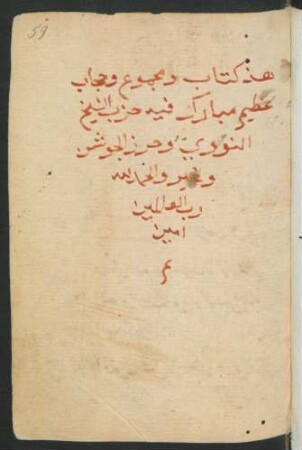 59
هذ كتاب ومجموع وحجاب
عظيم مبارك فيه حزب الشيخ
النووي وحرز الجوشن
وغير والحمد لله
رب العالمين
امين
م